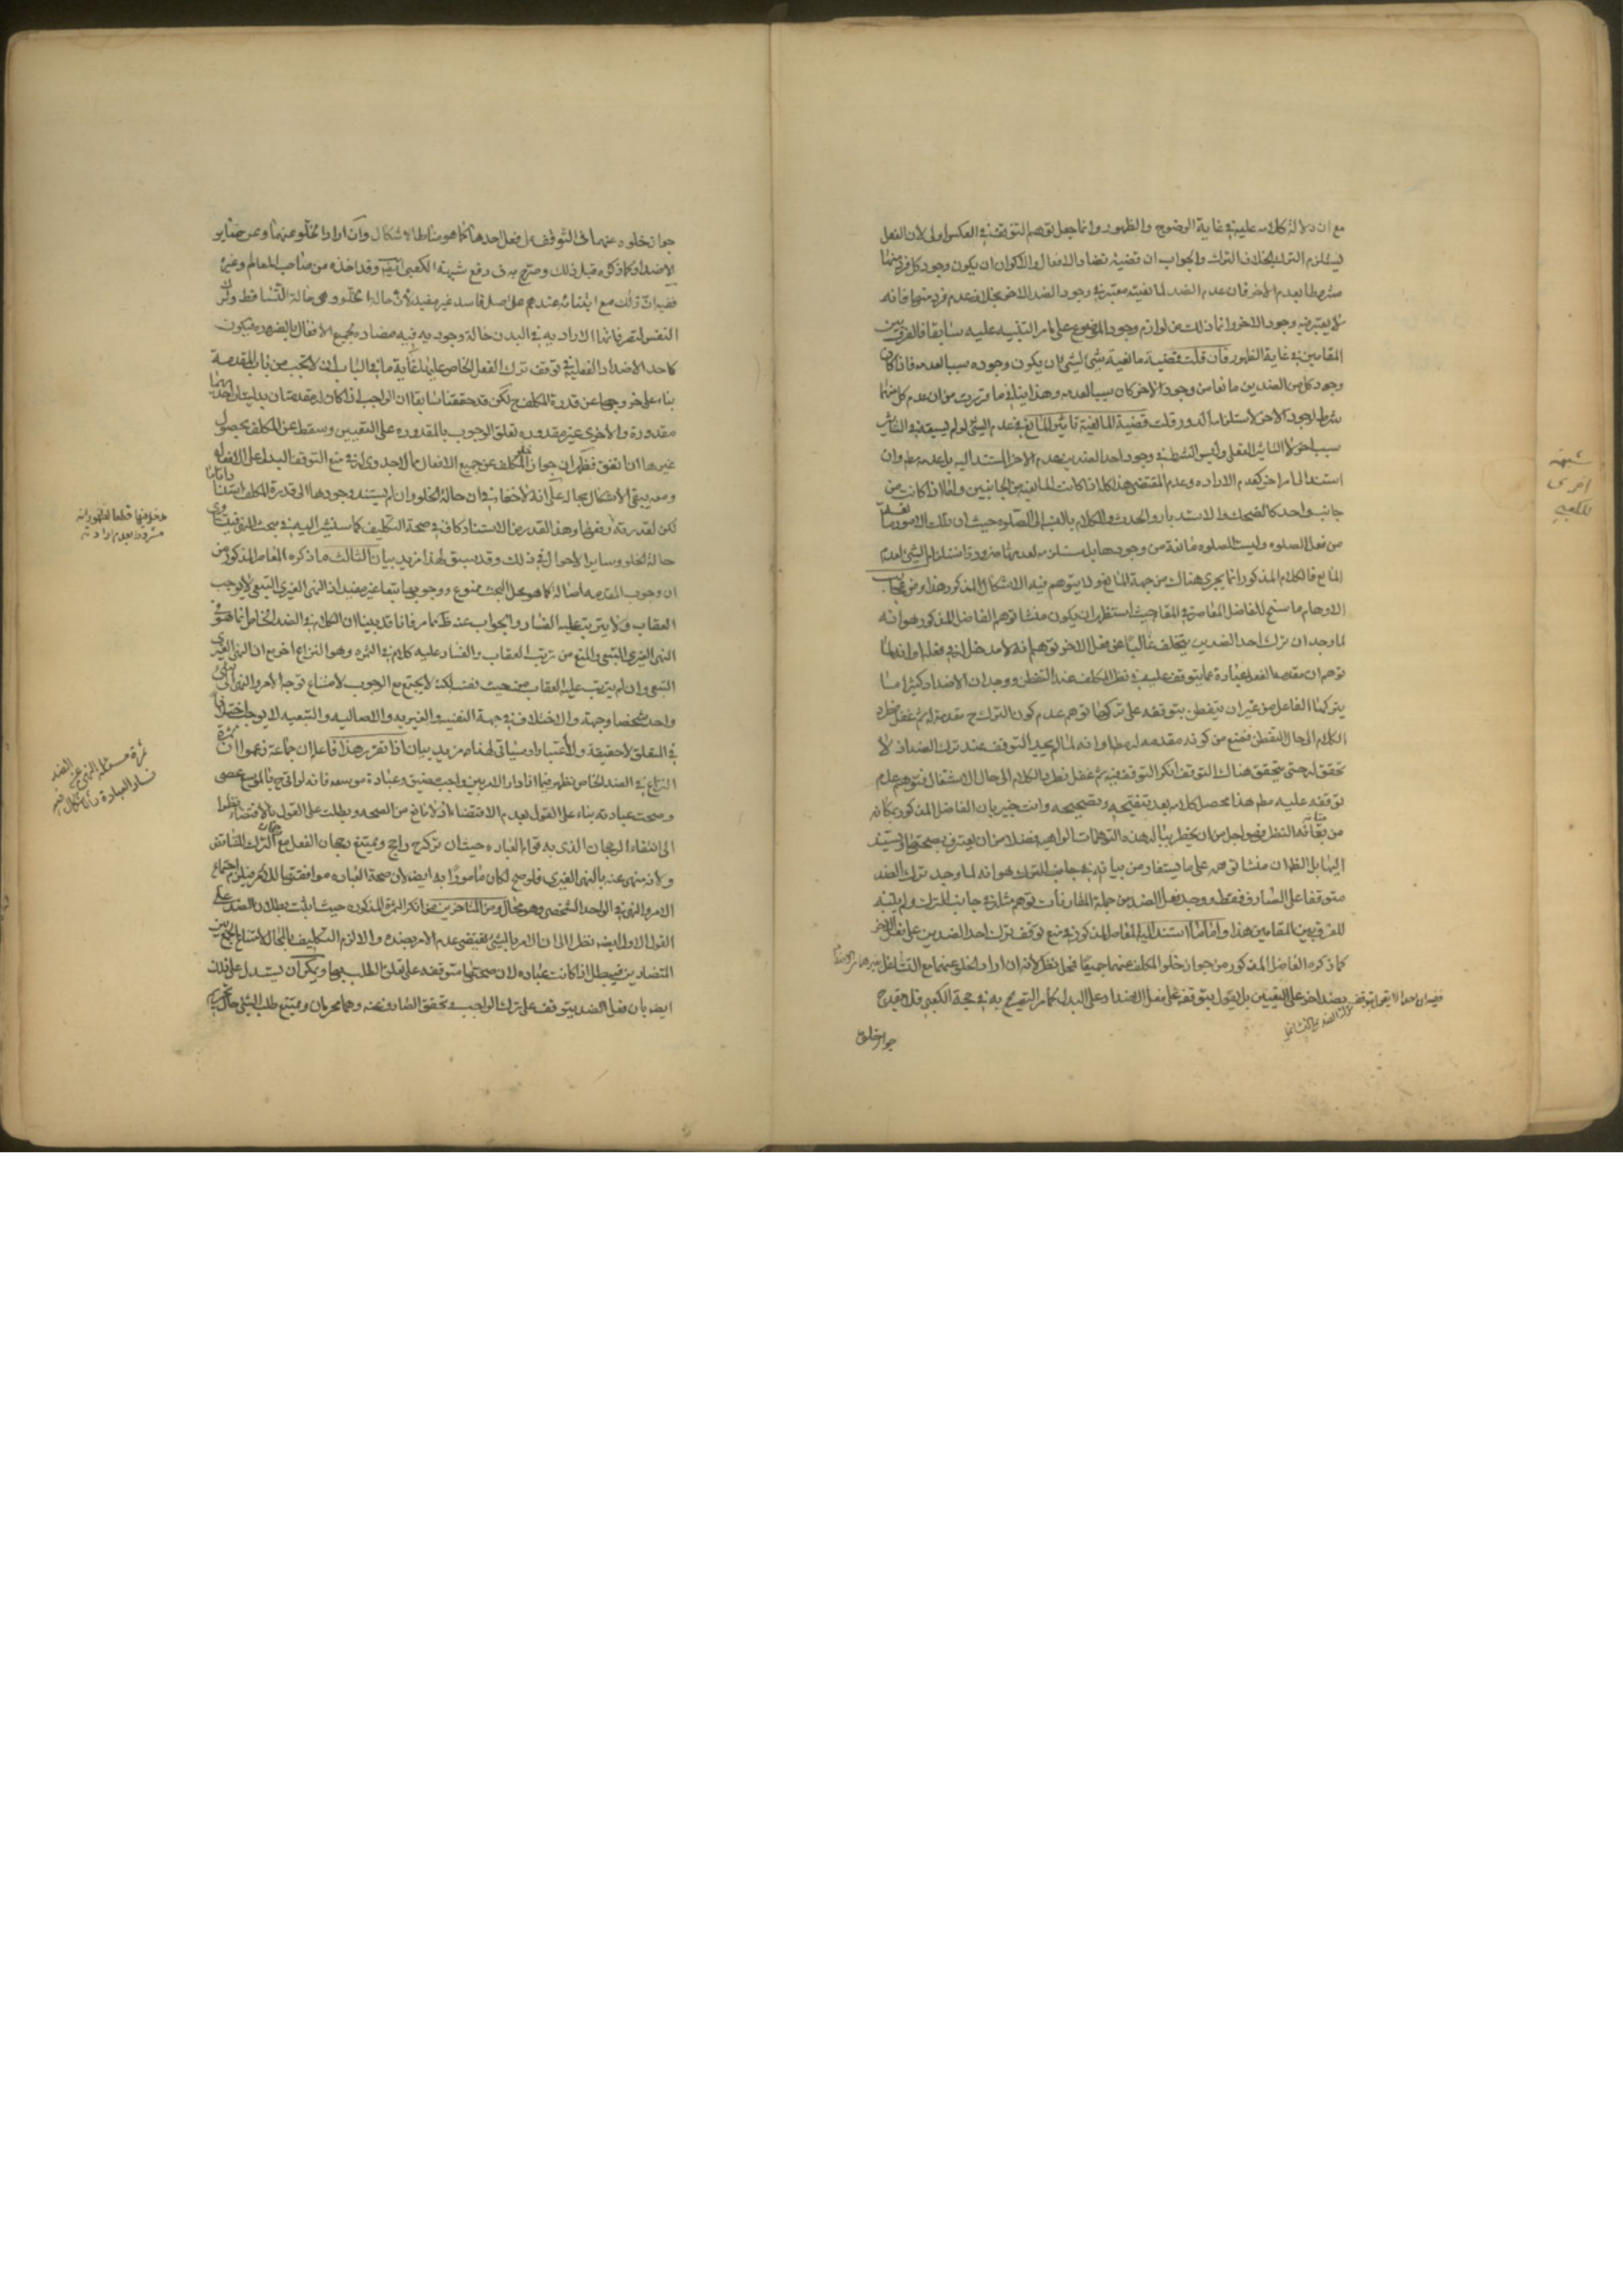 مع ان دلالة كلامه عليه في غاية الوضوح والظهور وانما جعل توهم التوقف في العكس اولى لان الفعل
يستلزم الترك بخلاف الترك والجواب ان قضية تضاد الافعال والاكوان ان يكون وجود كل فرد منها
مشروطا بعدم الاخر فان عدم الضد لمانعيته معتبر في وجود الضد الاخر بخلاف عدم فرد منها فانه
لا يعتبر فيه وجود الاخر وانما ذلك من لوازم وجود الموضوع على ما مر التنبيه عليه سابقا فالفرق بين
المقامين في غاية الظهور فان قلت قضية مانعية شئ لشئ ان يكون وجوده سببا لعدمه فاذا كان
وجود كل من الضدين مانعا من وجود الاخر كان سببا لعدمه وهذا ينافي ما قررت من ان عدم كل منهما
شرط لوجود الاخر لاستلزامه الدور قلت قضية المانعية تاثير المانع في عدم الشئ لو لم يسبقه في التاثير
سبب اخر لا التاثير الفعلي وليس الشرط في وجود احد الضدين عدم الاخر المستند اليه بل عدمه مطم وان
استند الى امر اخر كعدم الارادة وعدم المقتضي هذا كله اذا كانت المانعية من الجانبين واما اذا كانت من
جانب واحد كالضحك والاستدبار والحدث والكلام بالنسبة الى الصلوة حيث ان تلك الامور مانعة
من فعل الصلوة وليست الصلوة مانعة من وجودها بل مستلزمه لعدمها ضرورة استلزام الشئ لعدم
المانع فالكلام المذكور انما يجري هناك من جهة المانع ولا يتوهم فيه الاشكال المذكور هذا ومن عجائب
الاوهام ما سنح للفاضل المعاصر في المقام حيث استظهر ان يكون منشا توهم الفاضل المذكور هو انه
لما وجد ان ترك احد الضدين يتخلف غالبا عن فعل الاخر توهم انه لا مدخل له في فعله او انه لما
توهم ان مقدمة الفعل عبارة عما يتوقف عليه في نظر المكلف عند التفطن ووجد ان الاضداد كثيرا ما
يتركها الفاعل من غير ان يتفطن بتوقفه على تركها توهم عدم كون الترك ح مقدمة له ثم غفل فطرد
الكلام الى حال التفطن فمنع من كونه مقدمه له مطم او انه لما لم يجد التوقف عند ترك الضد اذ لا
تحقق له حتى يتحقق هناك التوقف انكر التوقف فيه ثم غفل فطرد الكلام الى حال الاشتغال فتوهم عدم
توقفه عليه مطم هذا محصل كلامه بعد تنقيحه وتصحيحه وانت خبير بان الفاضل المذكور بمكانه
من متانة النظر فهو اجل من ان يخطر بباله هذه التوهمات الواهيه فضلا من ان يعترف بصحتها او يستند
اليها بل الظاهر ان منشا توهمه على ما يستفاد من بيانه في جانب الترك هو انه لما وجد ترك الضد
متوقفا على الصارف فقط ووجد فعل الضد من جملة المقارنات توهم مثله في جانب الترك ولم يتنبه
للفرق بين المقامين هذا واما ما استند اليه الفاضل المذكور في منع توقف ترك احد الضدين على فعل الاخر
كما ذكره الفاضل المذكور من جواز خلو المكلف عنهما جميعا فمحل نظر لانه ان اراد الخلو عنهما مع التشاغل بغيرهما من الاضداد
ففيه ان احدا لا يقول بتوقف ترك الضد بضد اخر على التعيين بل يقول بتوقفه على فعل الضد او على البدل كما مر التصريح به في حجة الكعبي فلا يقدح
جواز خلوه
شبهة
اخرى
للكعبي
جواز خلوه عنهما في التوقف على فعل احدها كما هو مناط الاشكال وان اراد الخلو عنهما وعن ساير
الاضداد كما ذكره قبل ذلك وصرح به في دفع شبهة الكعبي ايضا وقد اخذه من صاحب المعالم وغيره
ففيه ان ذلك مع ابتنائه عندهم على اصل فاسد غير مفيد لان حالة الخلو وهي حالة التساقط وترك
النفس لتصرفاتها الاراديه في البدن حالة وجوديه فيه مضاده لجميع الافعال بالضروره فيكون
كاحد الاضداد الفعلية في توقف ترك الفعل الخاص عليها لغاية ما في الباب ان لا تجب من باب المقدمة
بناء على خروجها عن قدرة المكلف ح لكن قد حققنا سابقا ان الواجب اذا كان له مقدمتان بدليتان احديهما
مقدورة والاخرى غير مقدوره تعلق الوجوب بالمقدوره على التعيين وسقط عن المكلف بحصول
غيرها ان اتفق فظهر ان جواز خلو المكلف عن جميع الافعال مما لا جدوى له في منع التوقف البدل على الافعال
ومعه يبقى الاشكال بحاله على انه لا خفاء في ان حالة الخلو وان لم يستند وجودها الى قدرة المكلف ابتداء
لكن لقدرته دفعها وهذا القدر من الاستناد كاف في صحة التكليف كما سنشير اليه في بحث التوقيت
حالة الخلو وساير الاحوال في ذلك وقد سبق لهذا مزيد بيان الثالث ما ذكره المعاصر المذكور من
ان وجوب المقدمه اصالة كما هو محل البحث ممنوع ووجوبها تبعا غير مفيد اذ النهي الغيري التبعي لا يوجب
العقاب ولا يترتب عليه الفساد والجواب عنه ظ مما مر فانا قد بينا ان الكلام في الضد الخاص انما هو في
النهي الغيري التبعي والمنع من ترتب العقاب والفساد عليه كلام في الثمره وهو النزاع اخر مع ان النهي الغيري
التبعي وان لم يترتب عليه العقاب من حيث نفسه لكنه لا يجتمع مع الوجوب لامتناع توجه الامر والنهي الى شئ
واحد شخصا وجهة والاختلاف في جهة النفسيه والغيريه والاصاليه والتبعيه لا يوجب اختلافا
في المتعلق لا حقيقة ولا اعتبارا وسياتي لهذا مزيد بيان اذا تقرر هذا فاعلم ان جماعة زعموا ان ثمرة
النزاع في الضد الخاص تظهر فيما اذا دار الامر بين واجب مضيق وعبادة موسعه فانه لو اتى ح بالموسع عصى
وصحت عبادته بناء على القول بعدم الاقتضاء اذ لا مانع من الصحه وبطلت على القول بالاقتضاء نظرا
الى انتفاء الرجحان الذي به قوام العباده حيث ان تركه ح راجح ويمتنع رجحان الفعل مع رجحان الترك للتناقض
ولانه منهي عنه بالنهي الغيري فلو صح لكان مامورا به ايضا لان صحة العباده موافقتها للامر فيلزم اجتماع
الامر والنهي في الواحد الشخصي وهو محال ومن المتاخرين من انكر الثمرة المذكوره حيث اثبت بطلان الضد على
القول الاول ايضا نظرا الى ان الامر بالشئ يقتضي عدم الامر بضده والا لزم التكليف بالمحال لامتناع الجمع بين
التضادين فيبطل اذا كانت عباده لان صحتها متوقفه على تعلق الطلب بها ويمكن ان يستدل على ذلك
ايضا بان فعل الضد يتوقف على ترك الواجب وتحقق الصارف عنه وهما محرمان ويمتنع طلب الشئ حال تحريم
ثمرة مسئلة النهي عن الضد
فساد العبادة